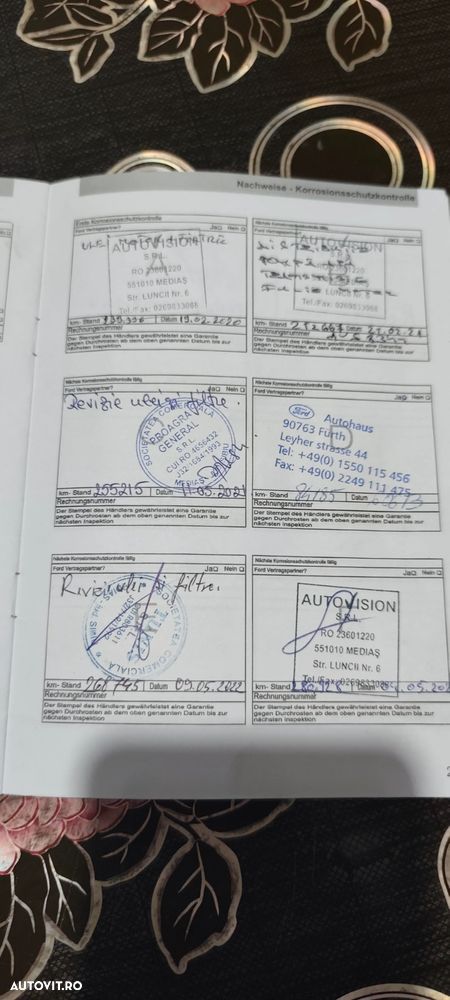 Nachweise - Korrosionsschutzkontrolle
Erste Korrosionsschutzkontrolle
Ford Vertragspartner? Ja Nein
AUTOVISION
S.R.L.
RO 23601220
551010 MEDIAȘ
Str. LUNCII Nr. 6
Tel./Fax: 0269833088
km- Stand Datum 19.02.2020
Rechnungsnummer
Der Stempel des Händlers gewährleistet eine Garantie
gegen Durchrosten ab dem oben genannten Datum bis zur
nächsten Inspektion
Nächste Korrosionsschutzkontrolle fällig
Ford Vertragspartner? Ja Nein
AUTOVISION
S.R.L.
RO 23601220
551010 MEDIAȘ
Str. LUNCII Nr. 6
Tel./Fax: 0269833088
km- Stand Datum
Rechnungsnummer
Der Stempel des Händlers gewährleistet eine Garantie
gegen Durchrosten ab dem oben genannten Datum bis zur
nächsten Inspektion
Nächste Korrosionsschutzkontrolle fällig
Ford Vertragspartner? Ja Nein
Revizie ulei si filtre.
SOCIETATEA COMERCIALA
PROAGRA
GENERAL
S.R.L.
MEDIAS
km- Stand 255215 Datum 11.05.2021
Rechnungsnummer
Der Stempel des Händlers gewährleistet eine Garantie
gegen Durchrosten ab dem oben genannten Datum bis zur
nächsten Inspektion
Nächste Korrosionsschutzkontrolle fällig
Ford Vertragspartner? Ja Nein
Ford Autohaus
90763 Fürth
Leyher strasse 44
Tel: +49(0) 1550 115 456
Fax: +49(0) 2249 111 475
km- Stand Datum
Rechnungsnummer
Der Stempel des Händlers gewährleistet eine Garantie
gegen Durchrosten ab dem oben genannten Datum bis zur
nächsten Inspektion
Nächste Korrosionsschutzkontrolle fällig
Ford Vertragspartner? Ja Nein
filtre.
SOCIETATEA COMERCIALA
km- Stand 268745 Datum 09.05.2022
Rechnungsnummer
Der Stempel des Händlers gewährleistet eine Garantie
gegen Durchrosten ab dem oben genannten Datum bis zur
nächsten Inspektion
Nächste Korrosionsschutzkontrolle fällig
Ford Vertragspartner? Ja Nein
AUTOVISION
S.R.L.
RO 23601220
551010 MEDIAȘ
Str. LUNCII Nr. 6
Tel./Fax: 0269833088
km- Stand Datum
Rechnungsnummer
Der Stempel des Händlers gewährleistet eine Garantie
gegen Durchrosten ab dem oben genannten Datum bis zur
nächsten Inspektion
AUTOVIT.RO